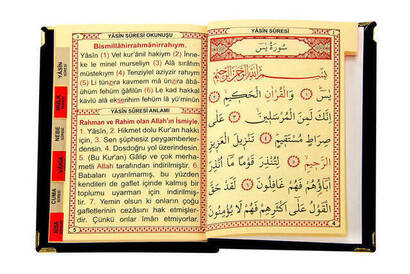 YÂSİN SÛRESİ OKUNUŞU
Bismillâhirrahmânirrahıym.
Yâsîn (1) Vel kur'ânil hakiym (2) İnne-
ke le minel murseliyn (3) Alâ sırâtın
müstekıym (4) Tenziylel aziyzir rahıym
(5) Li tünzira kavmen mâ ünzira âbâ-
ühum fehüm ğâfilûn (6) Le kad hakkal
kavlü alâ ekserihim fehüm lâ yü'minûn
YÂSİN SÛRESİ ANLAMI
Rahman ve Rahim olan Allah'ın İsmiyle.
1. Yâsîn, 2. Hikmet dolu Kur'an hakkı
için, 3. Sen şüphesiz peygamberler-
densin. 4. Dosdoğru yol üzerindesin.
5. (Bu Kur'an) Gâlip ve çok merha-
metli Allah tarafından indirilmiştir. 6.
Babaları uyarılmamış, bu yüzden
kendileri de gaflet içinde kalmış bir
toplumu uyarman için indirilmiş-
tir. 7. Yemin olsun ki onların çoğu
gafletlerinin cezasını hak etmişler-
dir. Çünkü onlar îman etmiyorlar.
5
YÂSİN
MÜLK
NEBE
VAKIA
CUMA
YÂSİN SÛRESİ
سُورَةُ يٰسٓ
بِسْمِ اللّٰهِ الرَّحْمٰنِ الرَّحِيمِ
يٰسٓ ﴿١﴾ وَالْقُرْاٰنِ الْحَكِيمِ ﴿٢﴾
اِنَّكَ لَمِنَ الْمُرْسَلِينَ ﴿٣﴾ عَلٰى
صِرَاطٍ مُسْتَقِيمٍ ﴿٤﴾ تَنْزِيلَ الْعَزِيزِ
الرَّحِيمِ ﴿٥﴾ لِتُنْذِرَ قَوْمًا مَٓا اُنْذِرَ
اٰبَٓاؤُهُمْ فَهُمْ غَافِلُونَ ﴿٦﴾ لَقَدْ حَقَّ
الْقَوْلُ عَلٰٓى اَكْثَرِهِمْ فَهُمْ لَا يُؤْمِنُونَ
4